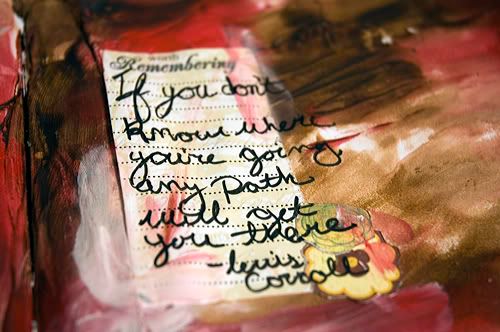 worth
Remembering
If you don't
know where
you're going
any Path
will get
you there
-Lewis
Carroll